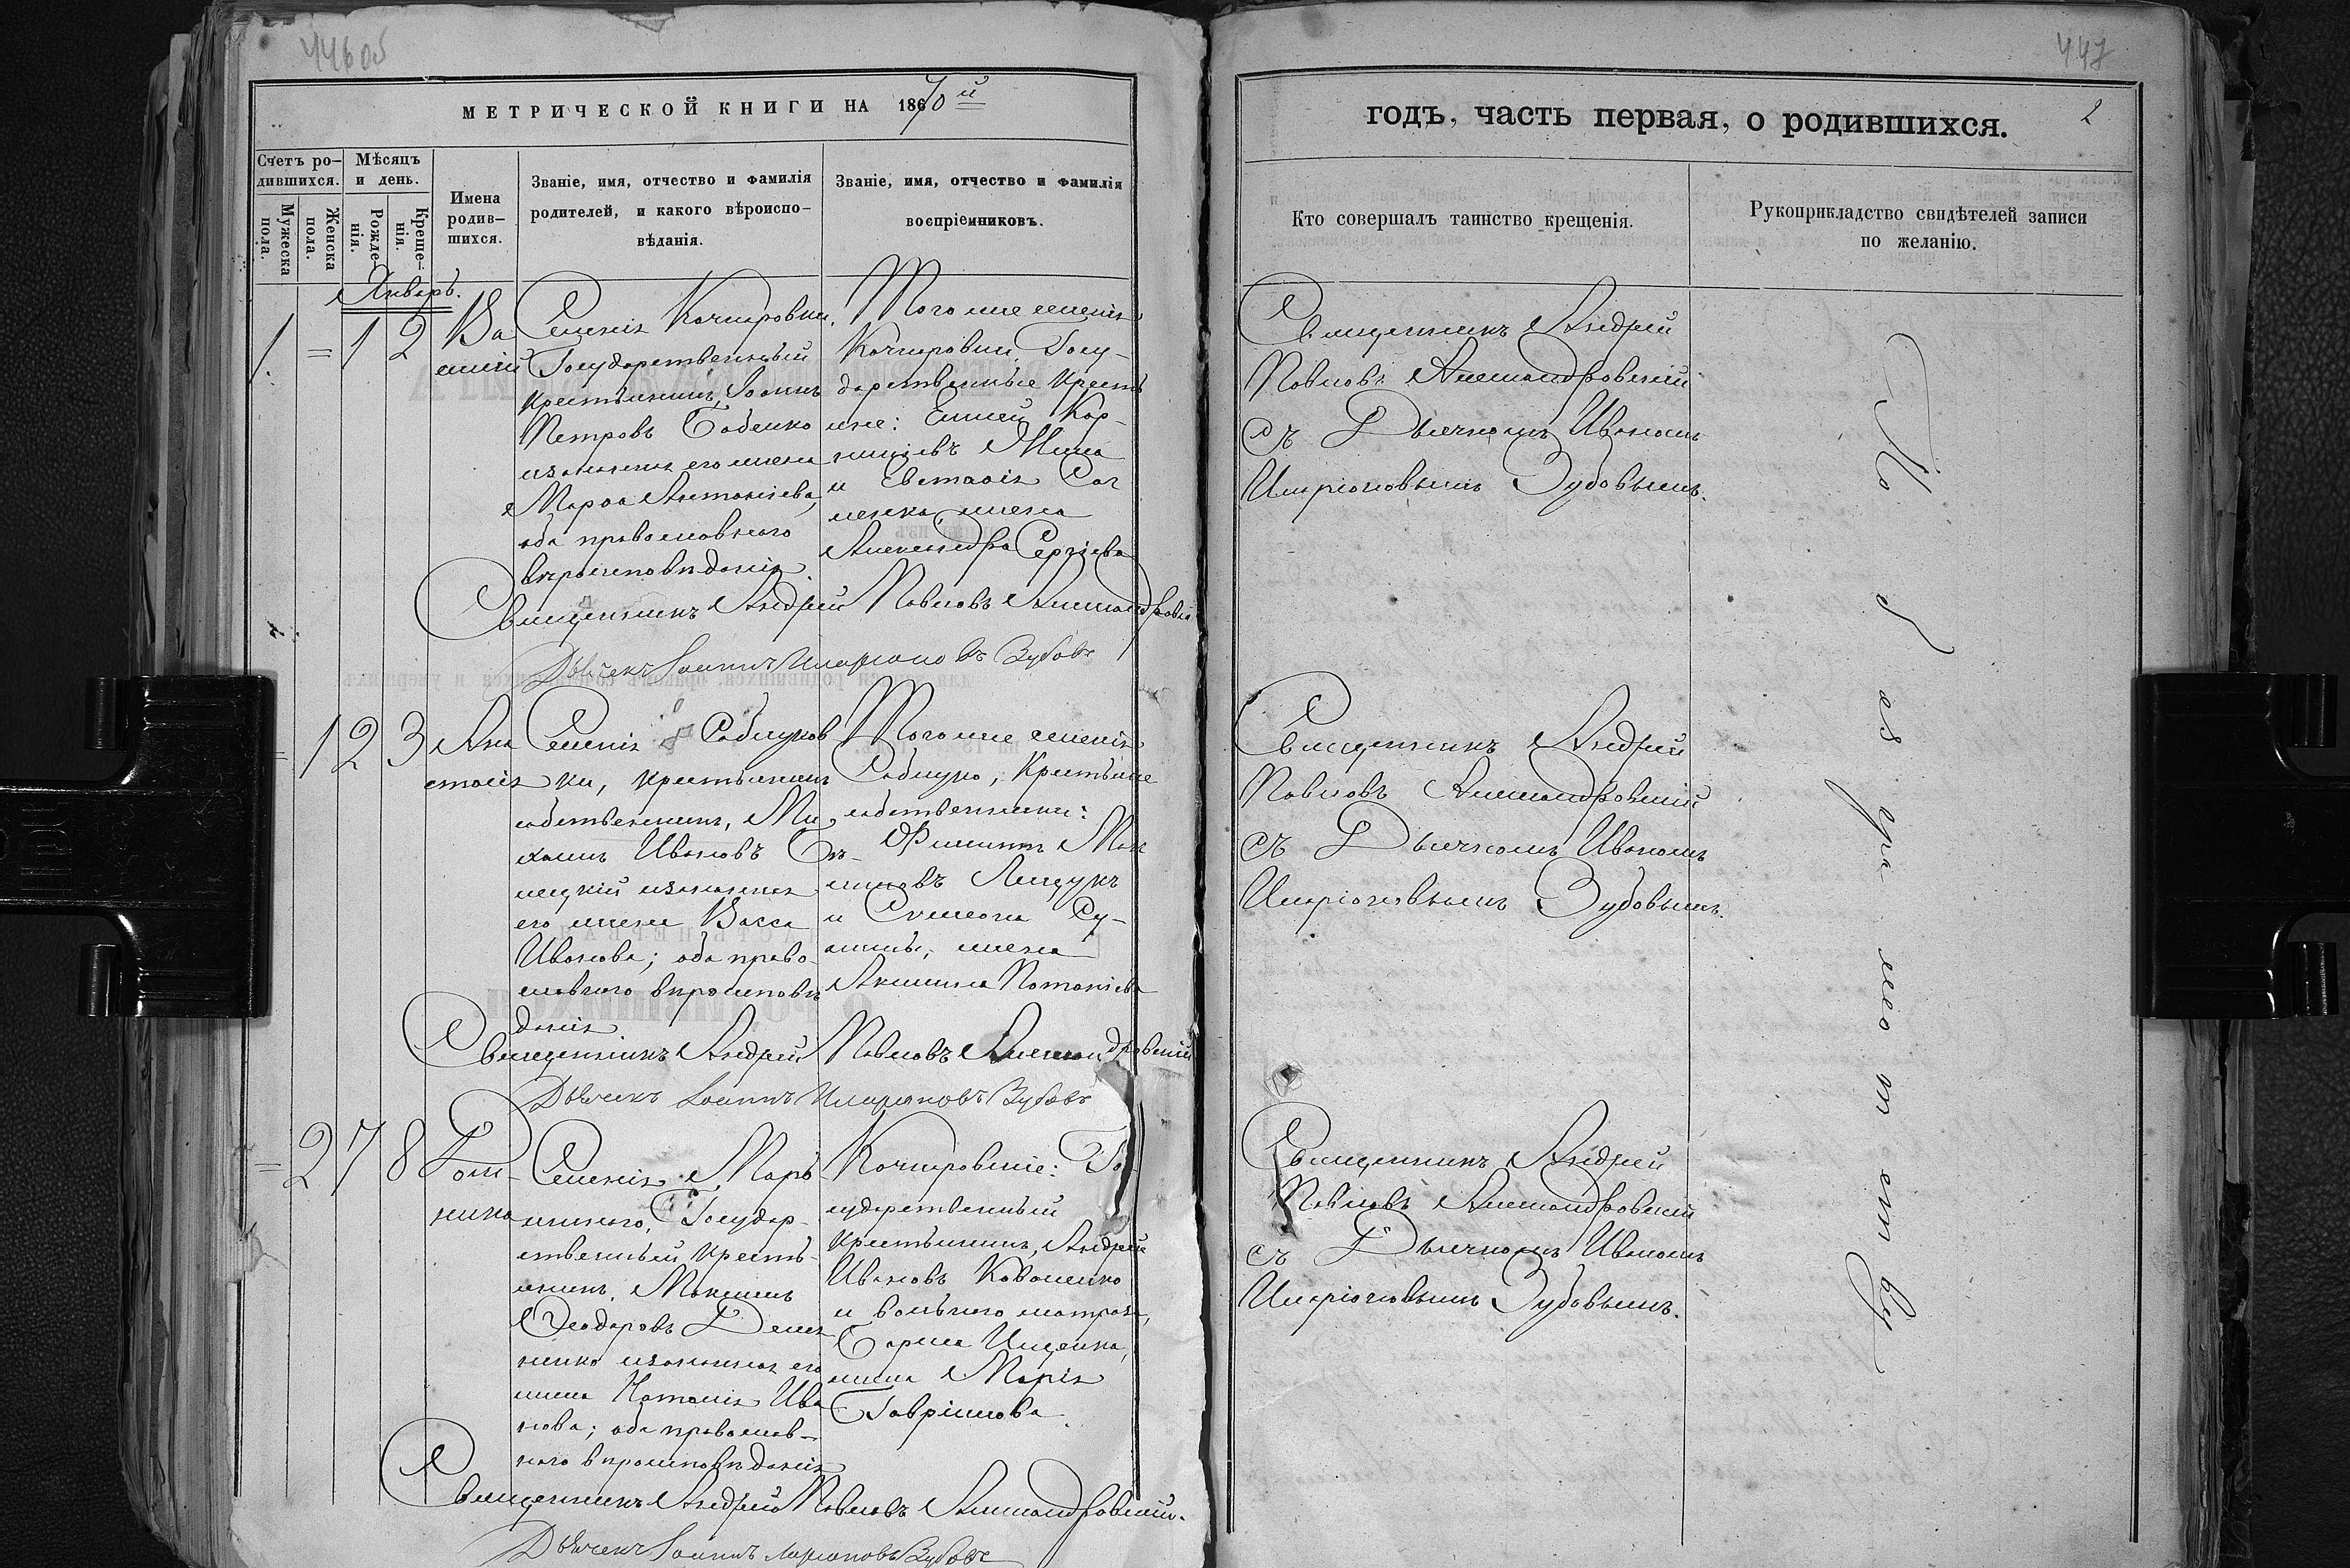 446об
МЕТРИЧЕСКОЙ КНИГИ НА 1870й
Счетъ ро-
дившихся.
Мѣсяцъ
и день.
Мужеска
пола.
Женска
пола.
Рожде-
нія.
Креще-
нія.
Имена
родив-
шихся.
Званіе, имя, отчество и фамилія
родителей, и какого вѣроиспо-
вѣданія.
Званіе, имя, отчество и фамилія
воспріемниковъ.
Январь.
1. = 1 2
Ва
силій
Селенія Качкаровки,
Государственный
Крестьянинъ, Іоаннъ
Петровъ Бабенко
изаконная его жена
Марѳа Антоніева,
оба православнаго
вѣроисповѣданія.
Того же селенія
Качкаровки, Госу-
дарственные Кресть
яне:
и Евстаѳія
жена
Александра Сергіева
Священникъ Андрей Павловъ
Дьячекъ Іоаннъ Иларіоновъ Зубовъ
= 1 2 3
Ана
стасія
Селенія Саблуков
ки, Крестьянинъ
собственникъ, Ми
хаилъ Ивановъ
изаконная
его жена Васса
Иванова; оба право-
славного вѣроисповѣ
данія
Того же селенія
Крестьяне
собственники:
и Симеона
жена
Акилина Потаніева
Священникъ Андрей Павловъ
Дьячекъ Іоаннъ Иларіоновъ Зубовъ
= 2 7 8
Дом-
ника
Селенія Марь
инскаго, Государ-
ственный Кресть-
янинъ, Максимъ
Ѳеодоровъ
изаконная его
жена Наталія Ива
нова; оба православ-
наго вѣроисповѣданія
Качкаровкіе: Го-
сударственный
Крестьянинъ, Андрей
Ивановъ Коваленко
и вольнаго матроса,
Бориса Ищенка,
жена Марія
Гавріилова.
Священникъ Андрей Павловъ
Дьячекъ Іоаннъ Ларіоновъ Зубовъ
447
2
годъ, часть первая, о родившихся.
Кто совершалъ таинство крещенія.
Рукоприкладство свидѣтелей записи
по желанію.
Священникъ Андрей
Павловъ
съ Дьячкомъ Иваномъ
Иларіоновымъ Зубовымъ.
Священникъ Андрей
Павловъ
съ Дьячкомъ Иваномъ
Иларіоновымъ Зубовымъ.
Священникъ Андрей
Павловъ
съ Дьячкомъ Иваномъ
Иларіоновымъ Зубовымъ.